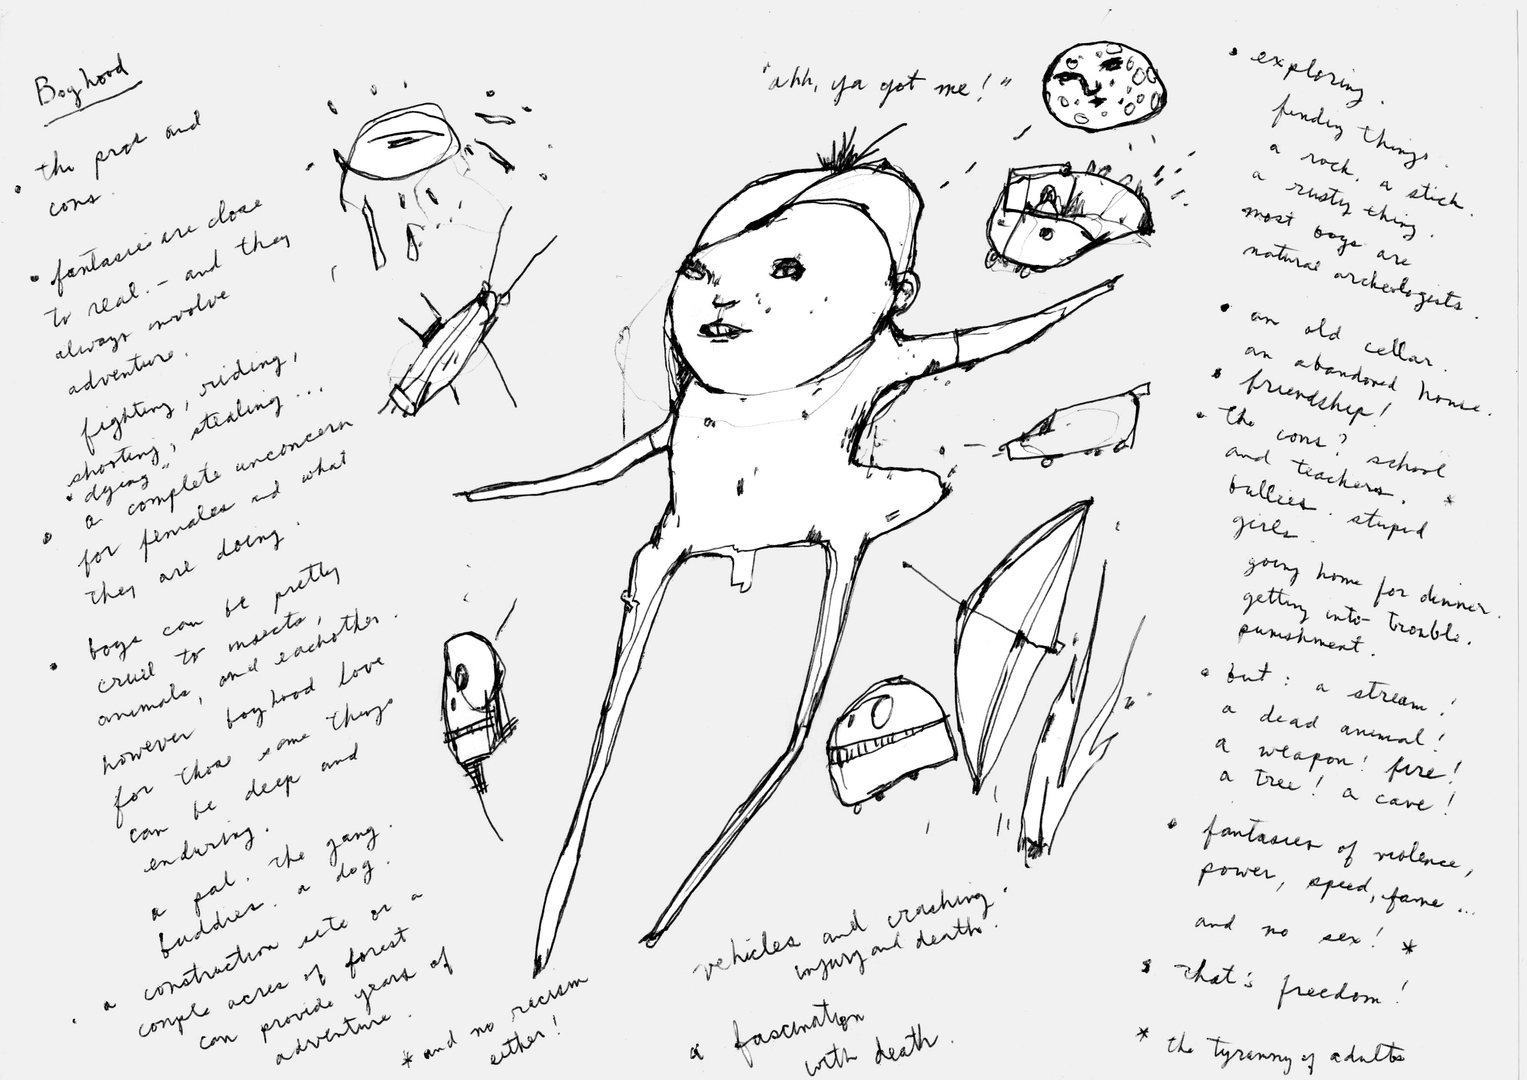 Boyhood
• the pros and
cons.
• fantasies are close
to real. – and they
always involve
adventure.
fighting, riding,
shooting, stealing...
• "dying"
• a complete unconcern
for females and what
they are doing.
• boys can be pretty
cruel to insects,
animals, and eachother.
however boyhood love
for those same things
can be deep and
enduring.
a pal. the gang.
buddies. a dog.
• a construction site or a
couple acres of forest
can provide years of
adventure.
* and no racism
either!
"ahh, ya got me!"
vehicles and crashing.
injury and death.
a fascination
with death.
• exploring.
finding things.
a rock. a stick.
a rusty thing.
most boys are
natural archeologists.
• an old cellar.
an abandoned house.
• friendship!
• the cons? school
and teachers. *
bullies. stupid
girls.
going home for dinner.
getting into trouble.
punishment.
• but: a stream!
a dead animal!
a weapon! fire!
a tree! a cave!
• fantasies of violence,
power, speed, fame...
and no sex! *
• that's freedom!
* the tyranny of adults